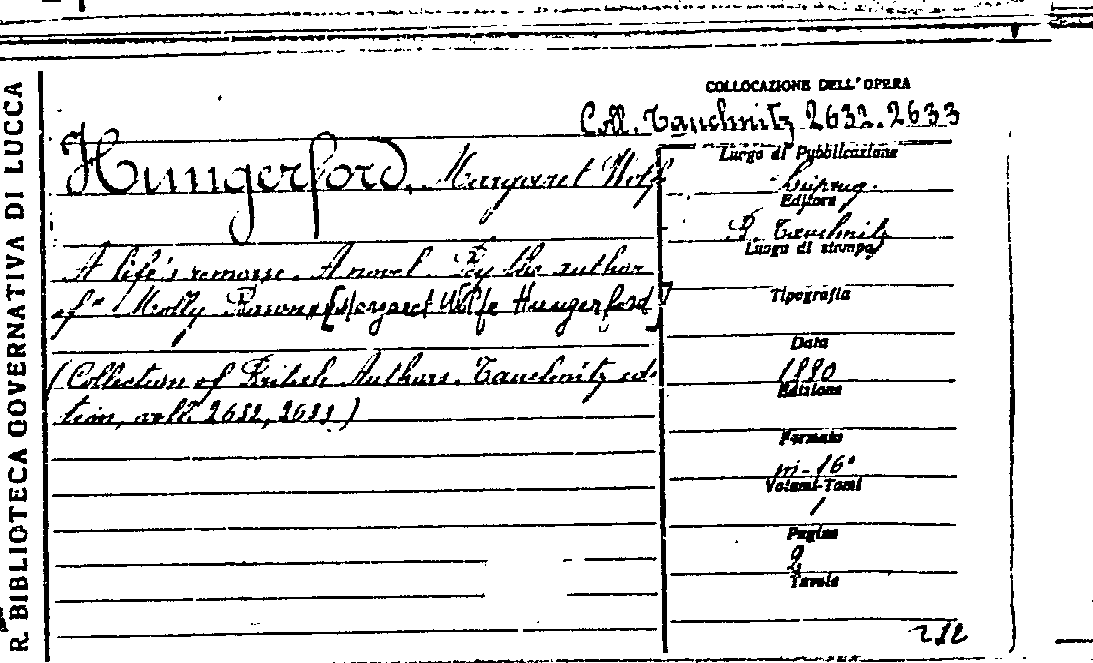 R. BIBLIOTECA GOVERNATIVA DI LUCCA
COLLOCAZIONE DELL'OPERA
Coll. Tauchnitz 2632.2633
Hungerford, Margaret Wolfe
A life's remorse. A novel. By the author
of "Molly Bawn" [Margaret Wolfe Hungerford]
(Collection of British Authors. Tauchnitz edi-
tion, voll. 2632, 2633)
Luogo di Pubblicazione
Leipzig.
Editore
B. Tauchnitz
Luogo di stampa
Tipografia
Data
1890
Edizione
Formato
in-16°
Volumi-Tomi
1
Pagine
Tavole